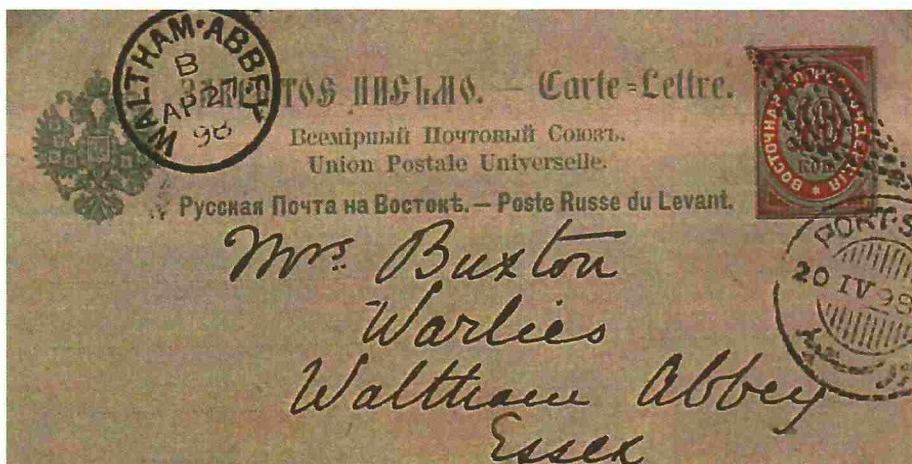 WALTHAM·ABBEY
B
AP 27
98
ЗАКРЫТОЕ ПИСЬМО. — Carte=Lettre.
Всемірный Почтовый Союзъ.
Union Postale Universelle.
Русская Почта на Востокѣ. — Poste Russe du Levant.
ВОСТОЧНАЯ КОРРЕСПОНДЕНЦІЯ *
10
КОП.
PORT-S
20 IV 98
Mrs. Buxton
Warlies
Waltham Abbey
Essex